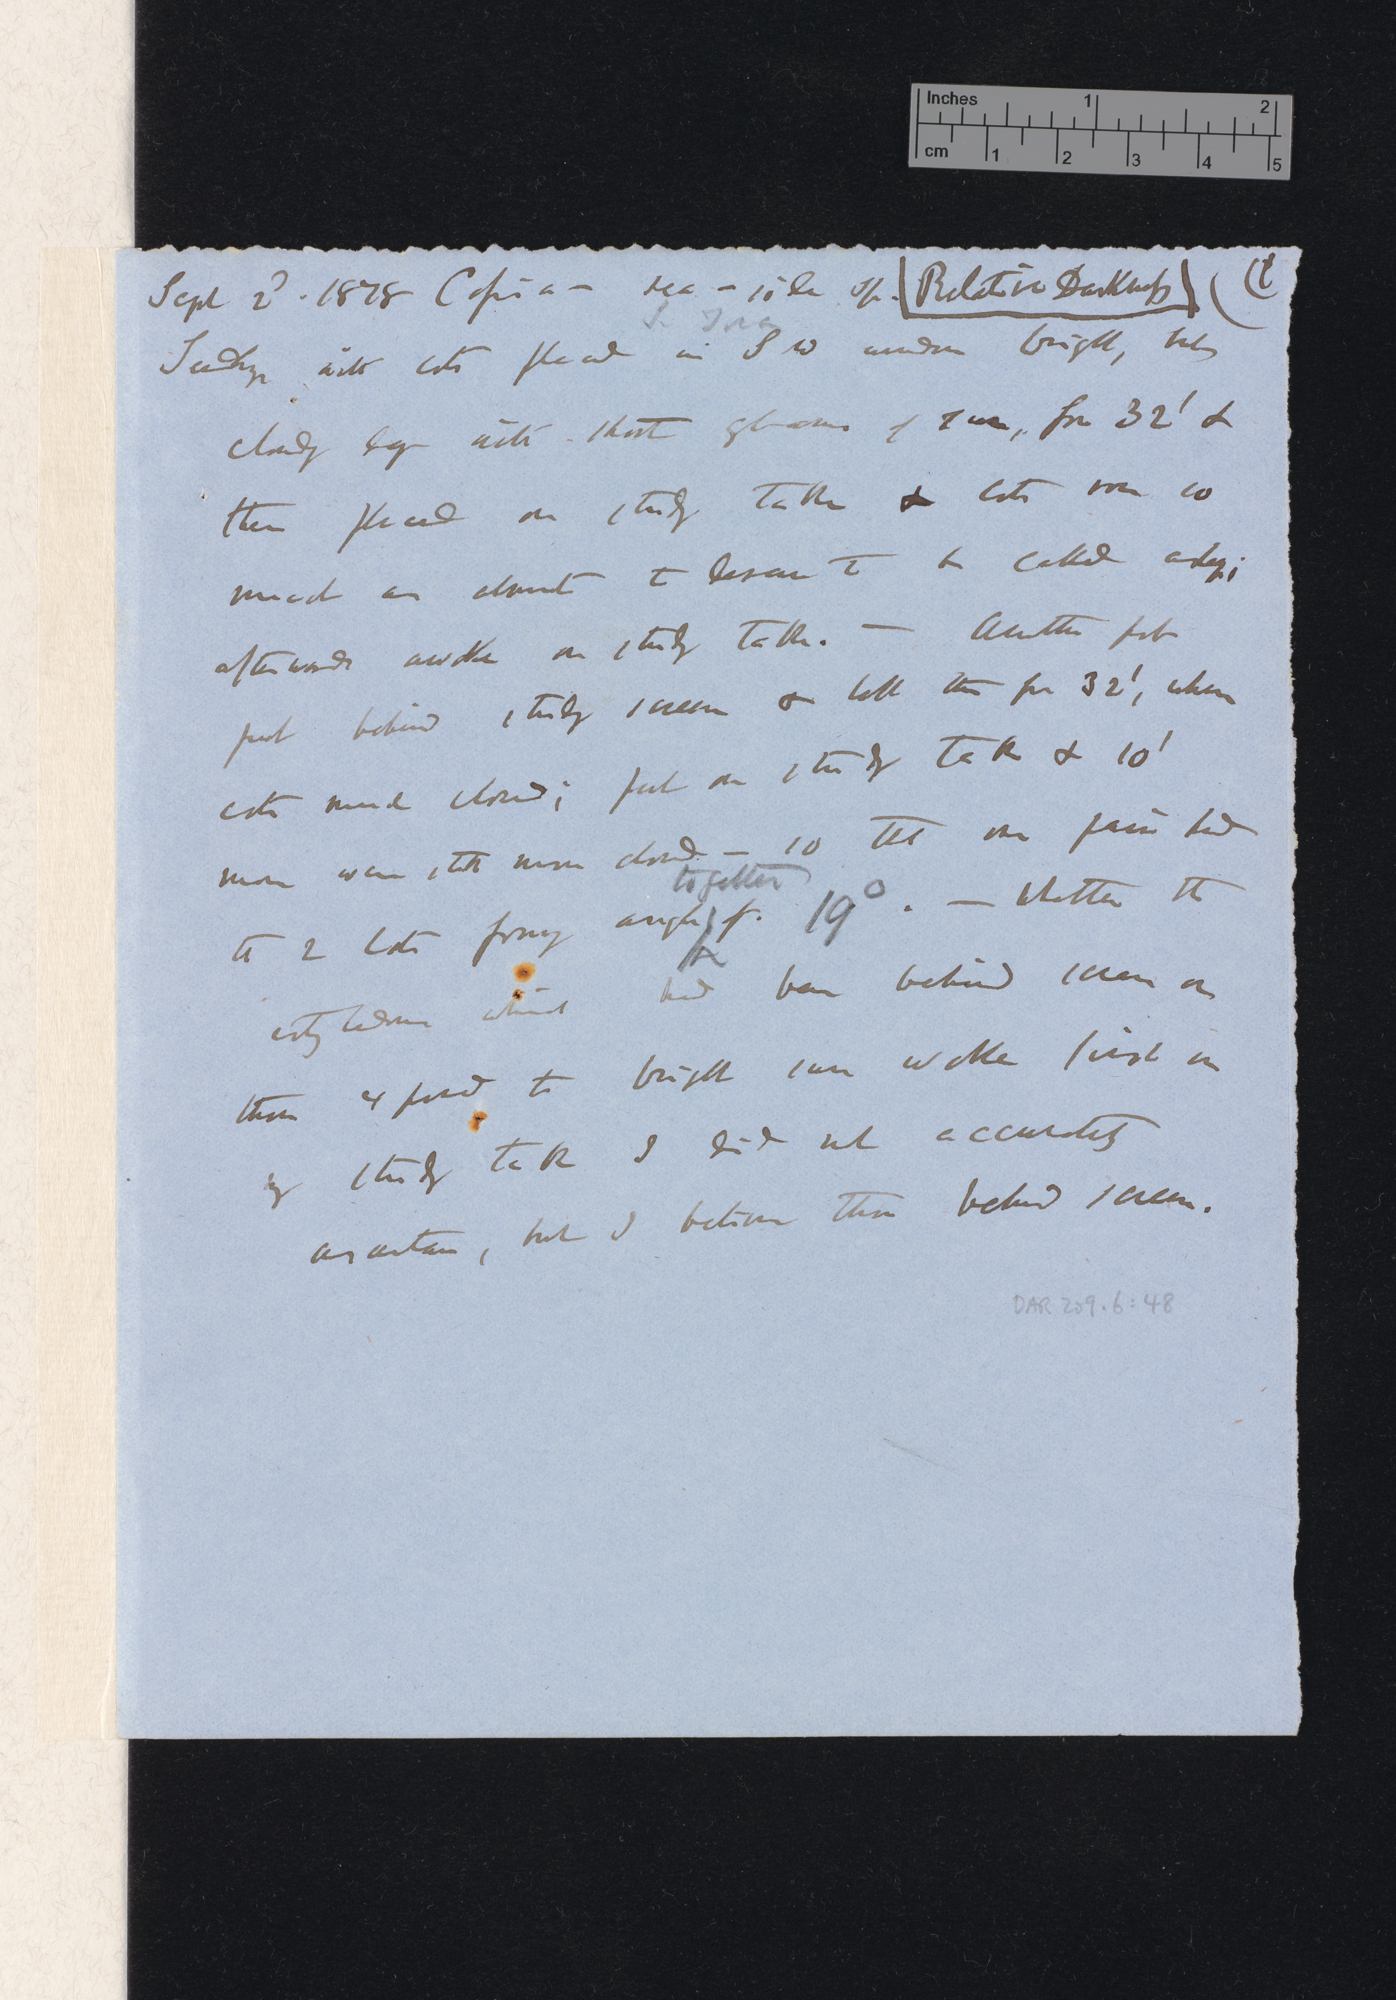 Inches 1 2
cm 1 2 3 4 5
Sept 2d. 1878 Cassia — sea-side sp. Relative Darkness (1
Seedlings with cots placed in S W window bright, but
cloudy day with short gleams of sun, for 32' &
then placed on study table & cots rose so
much as almost to deserve to be called asleep;
afterwards awoke on study table. — Another pot
put behind study screen & left there for 32', when
cots much closed; put on study table & 10'
more were still more closed — so that one pair had
together
its 2 cots forming angle of 19°. — Whether the
cotyledons which had been behind screen or
those exposed to bright sun woke first on
my study table I did not accurately
ascertain, but I believe those behind screen.
DAR 209.6:48